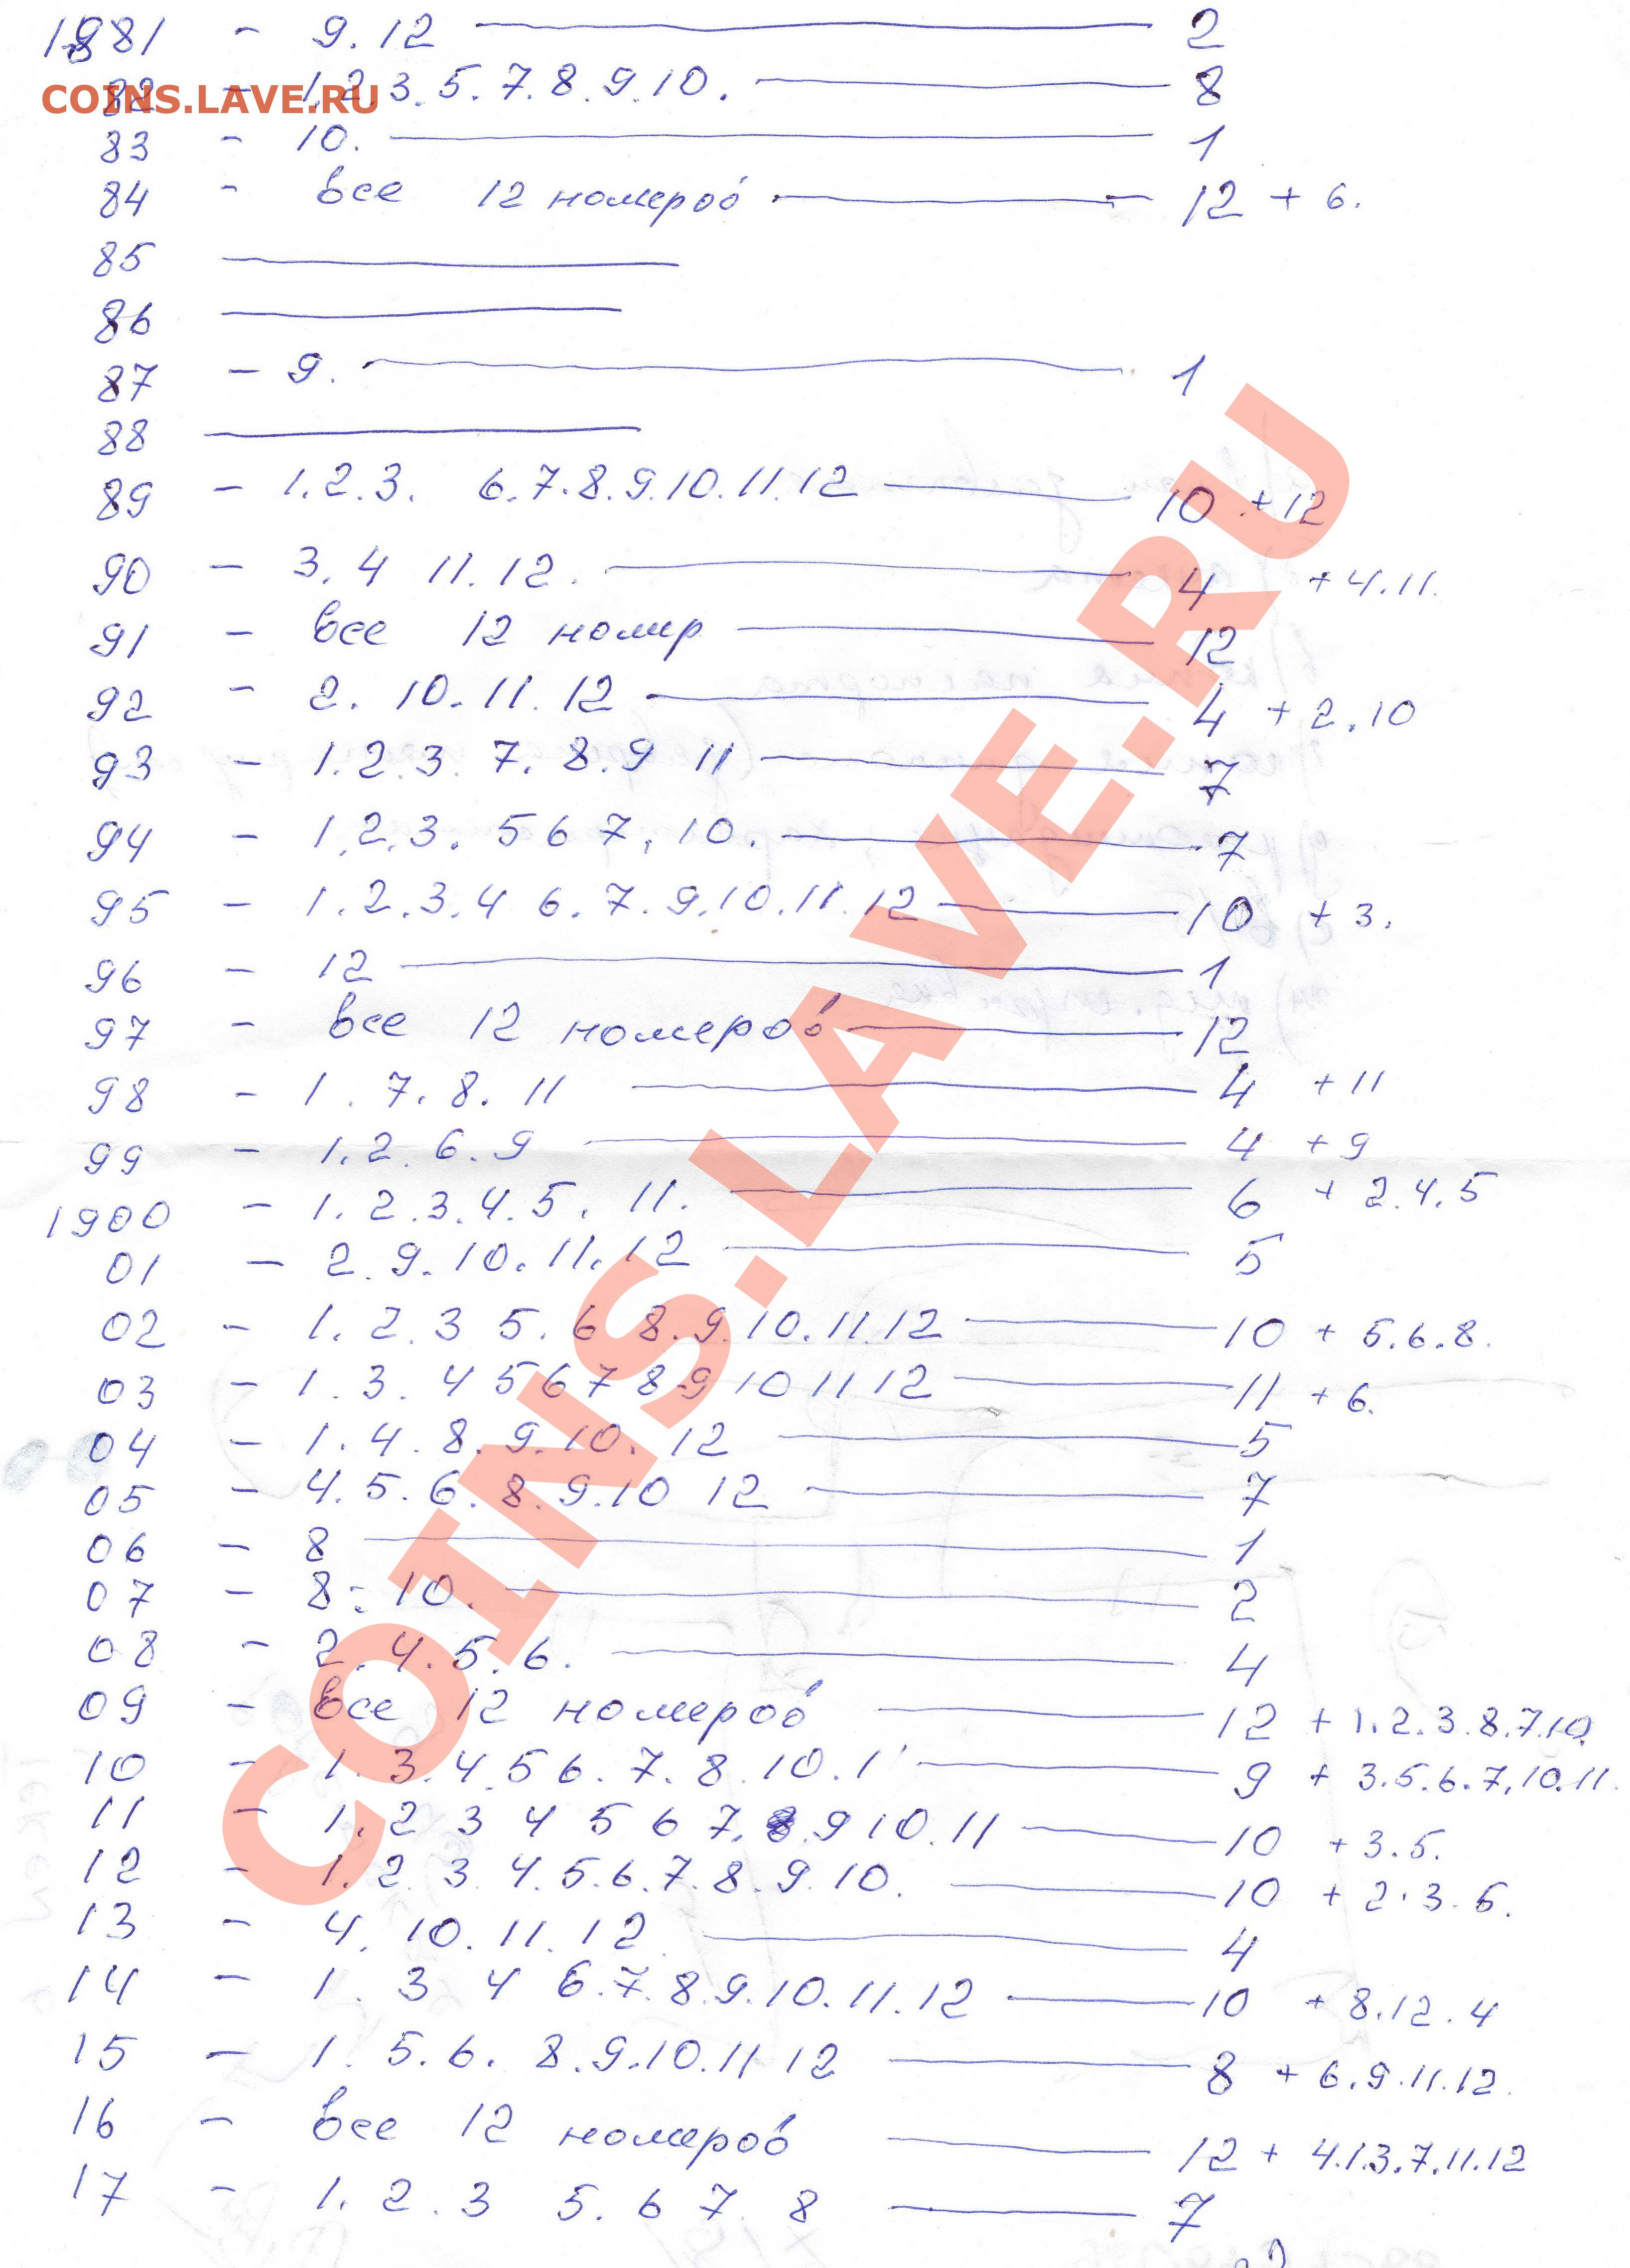 1881 - 9.12 — 2
82 - 1.2.3.5.7.8.9.10. — 8
COINS.LAVE.RU
83 - 10. — 1
84 - все 12 номеров — 12 + 6.
85 —
86 —
87 - 9. — 1
88 —
89 - 1.2.3. 6.7.8.9.10.11.12 — 10 + 12
90 - 3.4 11.12. — 4 + 4.11.
91 - все 12 номер — 12
92 - 2. 10.11.12 — 4 + 2.10
93 - 1.2.3. 7.8.9 11 — 7
94 - 1.2.3. 5 6 7. 10. — 7
95 - 1.2.3.4 6.7.9.10.11.12 — 10 + 3.
96 - 12 — 1
97 - все 12 номеров — 12
98 - 1. 7.8.11 — 4 + 11
99 - 1.2.6.9 — 4 + 9
1900 - 1.2.3.4.5. 11. — 6 + 2.4.5
01 - 2.9.10.11.12 — 5
02 - 1.2.3 5.6 8.9.10.11.12 — 10 + 5.6.8.
03 - 1.3.4 5 6 7 8.9 10 11 12 — 11 + 6.
04 - 1.4.8.9.10.12 — 5
05 - 4.5.6.8.9.10 12 — 7
06 - 8 — 1
07 - 8.10. — 2
08 - 2.4.5.6. — 4
09 - все 12 номеров — 12 + 1.2.3.8.7.10.
10 - 1.3.4.5 6.7.8.10.1 — 9 + 3.5.6.7.10.11.
11 - 1.2 3 4 5 6 7. 9 10.11 — 10 + 3.5.
12 - 1.2.3.4.5.6.7.8.9.10. — 10 + 2.3.5.
13 - 4.10.11.12 — 4
14 - 1.3 4 6.7.8.9.10.11.12 — 10 + 8.12.4
15 - 1.5.6. 8.9.10.11 12 — 8 + 6.9.11.12.
16 - все 12 номеров — 12 + 4.1.3.7.11.12
17 - 1.2.3 5.6 7 8 — 7
COINS.LAVE.RU